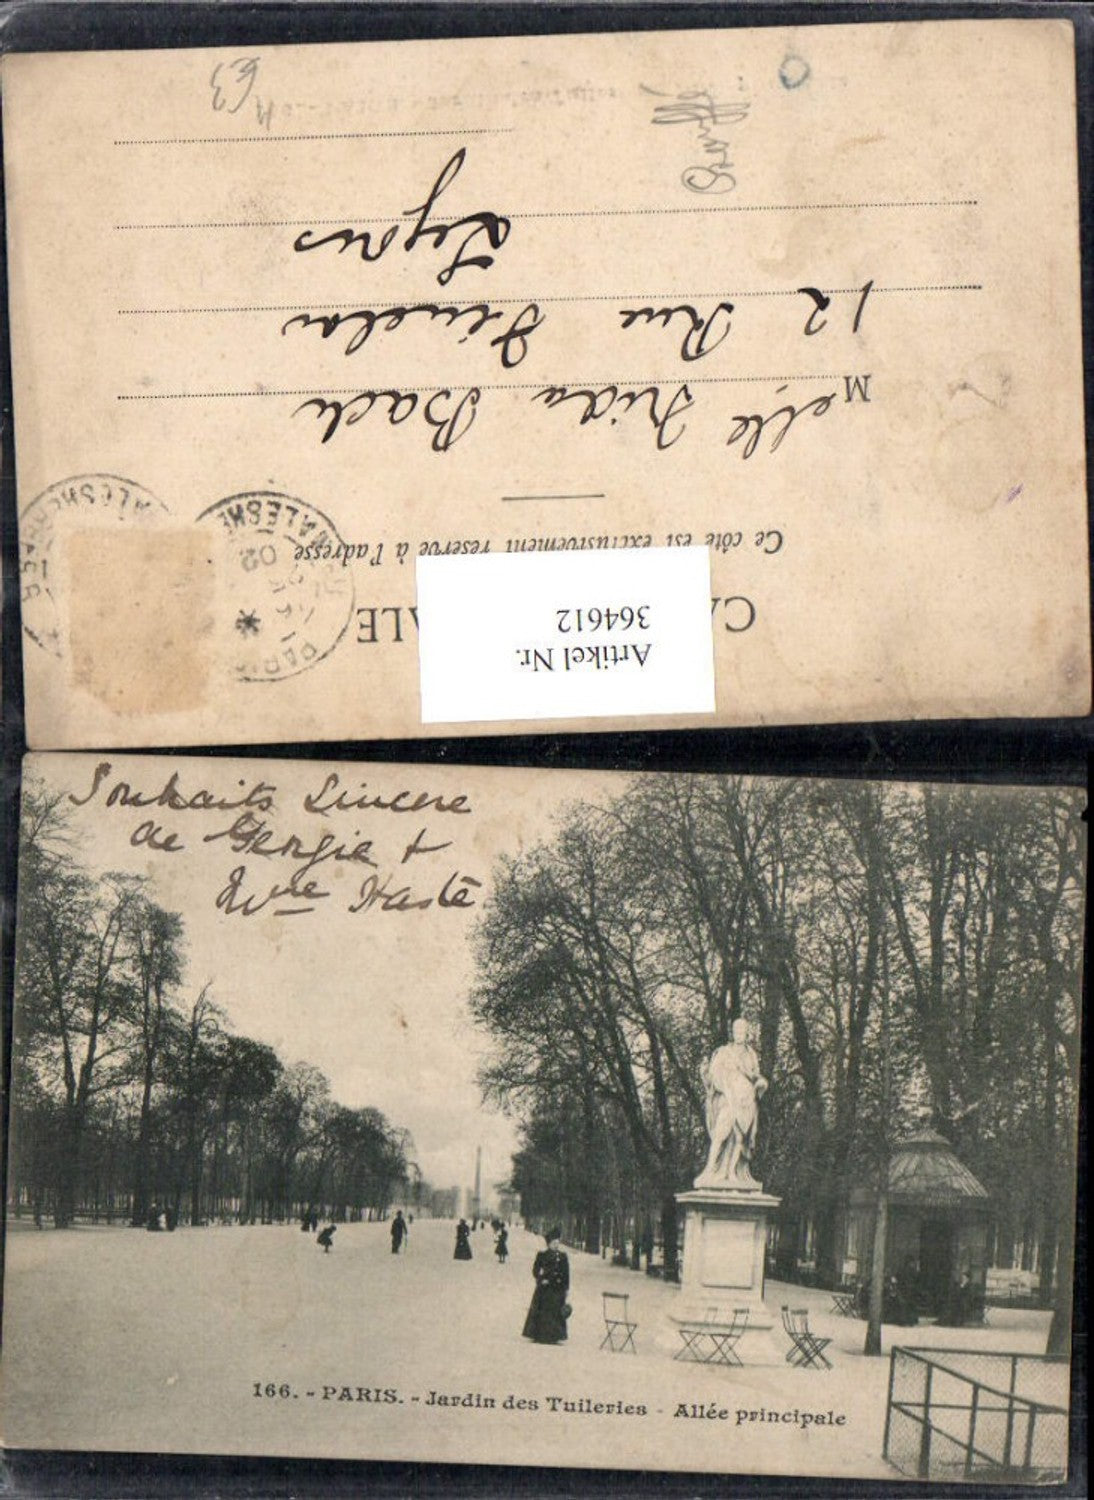 CA ALE
Ce côté est exclusivement réservé à l'adresse
Melle Frida Bach
12 Rue Fénelon
Lyon
63
O
PARIS
MALESHE
02
MALESHERBES
Artikel Nr.
364612
Souhaits Sincere
de Georgie +
Mme Haste
166. - PARIS. - Jardin des Tuileries - Allée principale